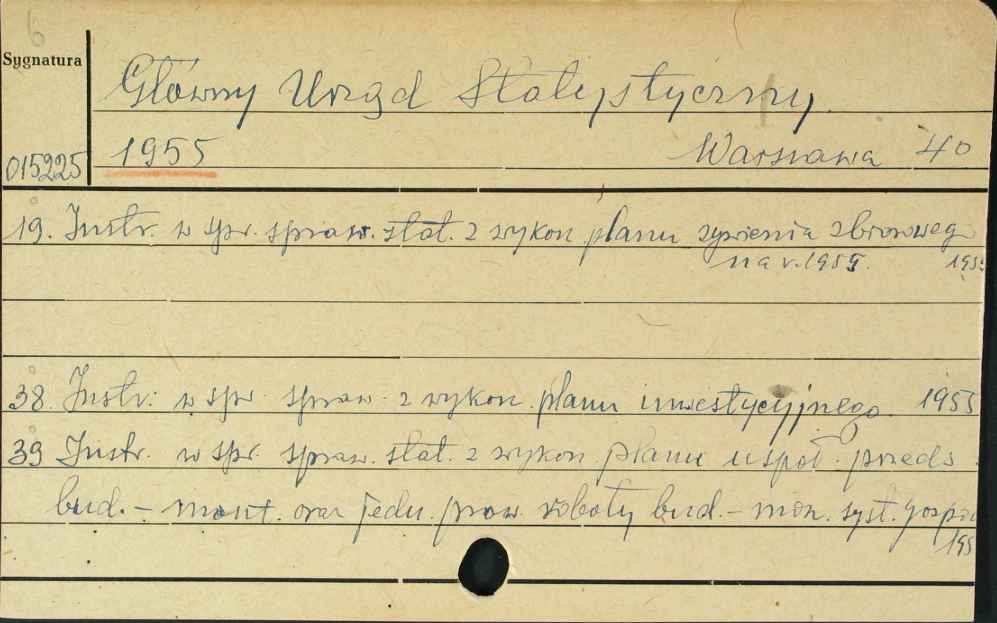 6
Sygnatura
Główny Urząd Statystyczny
015225 1955 Warszawa 40
19. Instr. w spr. spraw. stat. z wykon. planu żywienia zbiorowego
na r. 1955. 1955
38. Instr. w spr. spraw. z wykon. planu inwestycyjnego. 1955
39 Instr. w spr. spraw. stat. z wykon. planu uspoł. przeds
bud. - mont. oraz jedn. prow. roboty bud. - mon. syst. gospod
195